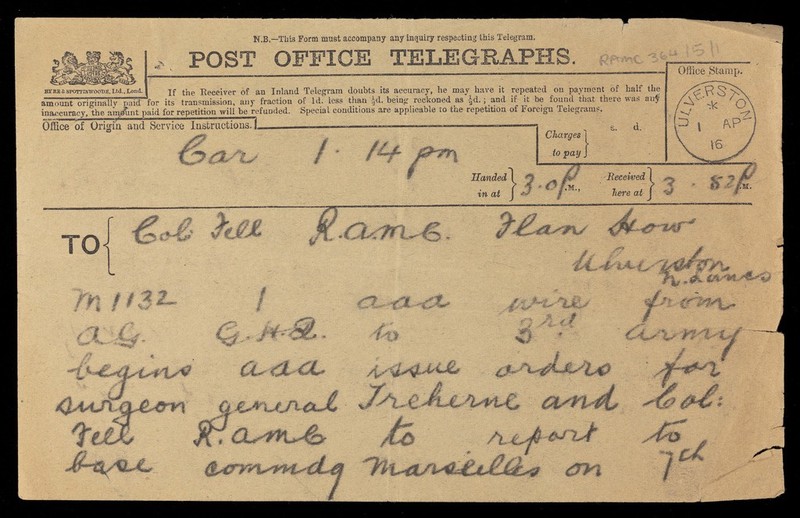 N.B.—This Form must accompany any inquiry respecting this Telegram.
POST OFFICE TELEGRAPHS.
RAMC 364/5/1
Office Stamp.
If the Receiver of an Inland Telegram doubts its accuracy, he may have it repeated on payment of half the
amount originally paid for its transmission, any fraction of 1d. less than ½d. being reckoned as ½d.; and if it be found that there was any
inaccuracy, the amount paid for repetition will be refunded. Special conditions are applicable to the repetition of Foreign Telegrams.
ULVERSTON
1 AP
16
Office of Origin and Service Instructions.
Charges to pay
s. d.
Car 1.14 pm
Handed in at 3.0 P.M., Received here at 3.52 P.M.
TO Col: Fell R.A.M.C. Flan How
Ulverston
N. Lancs
M1132 1 aaa wire from
A.G. G.H.Q. to 3rd army
begins aaa issue orders for
surgeon general Treherne and Col:
Fell R.AMC to report to
base commdg Marseilles on 7th